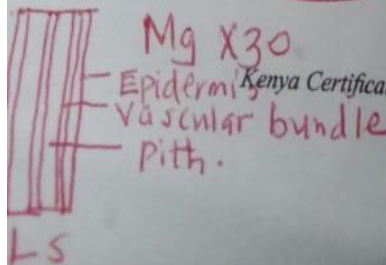 Mg X30
Epidermis
Kenya Certifica
Vascular bundle
Pith.
LS